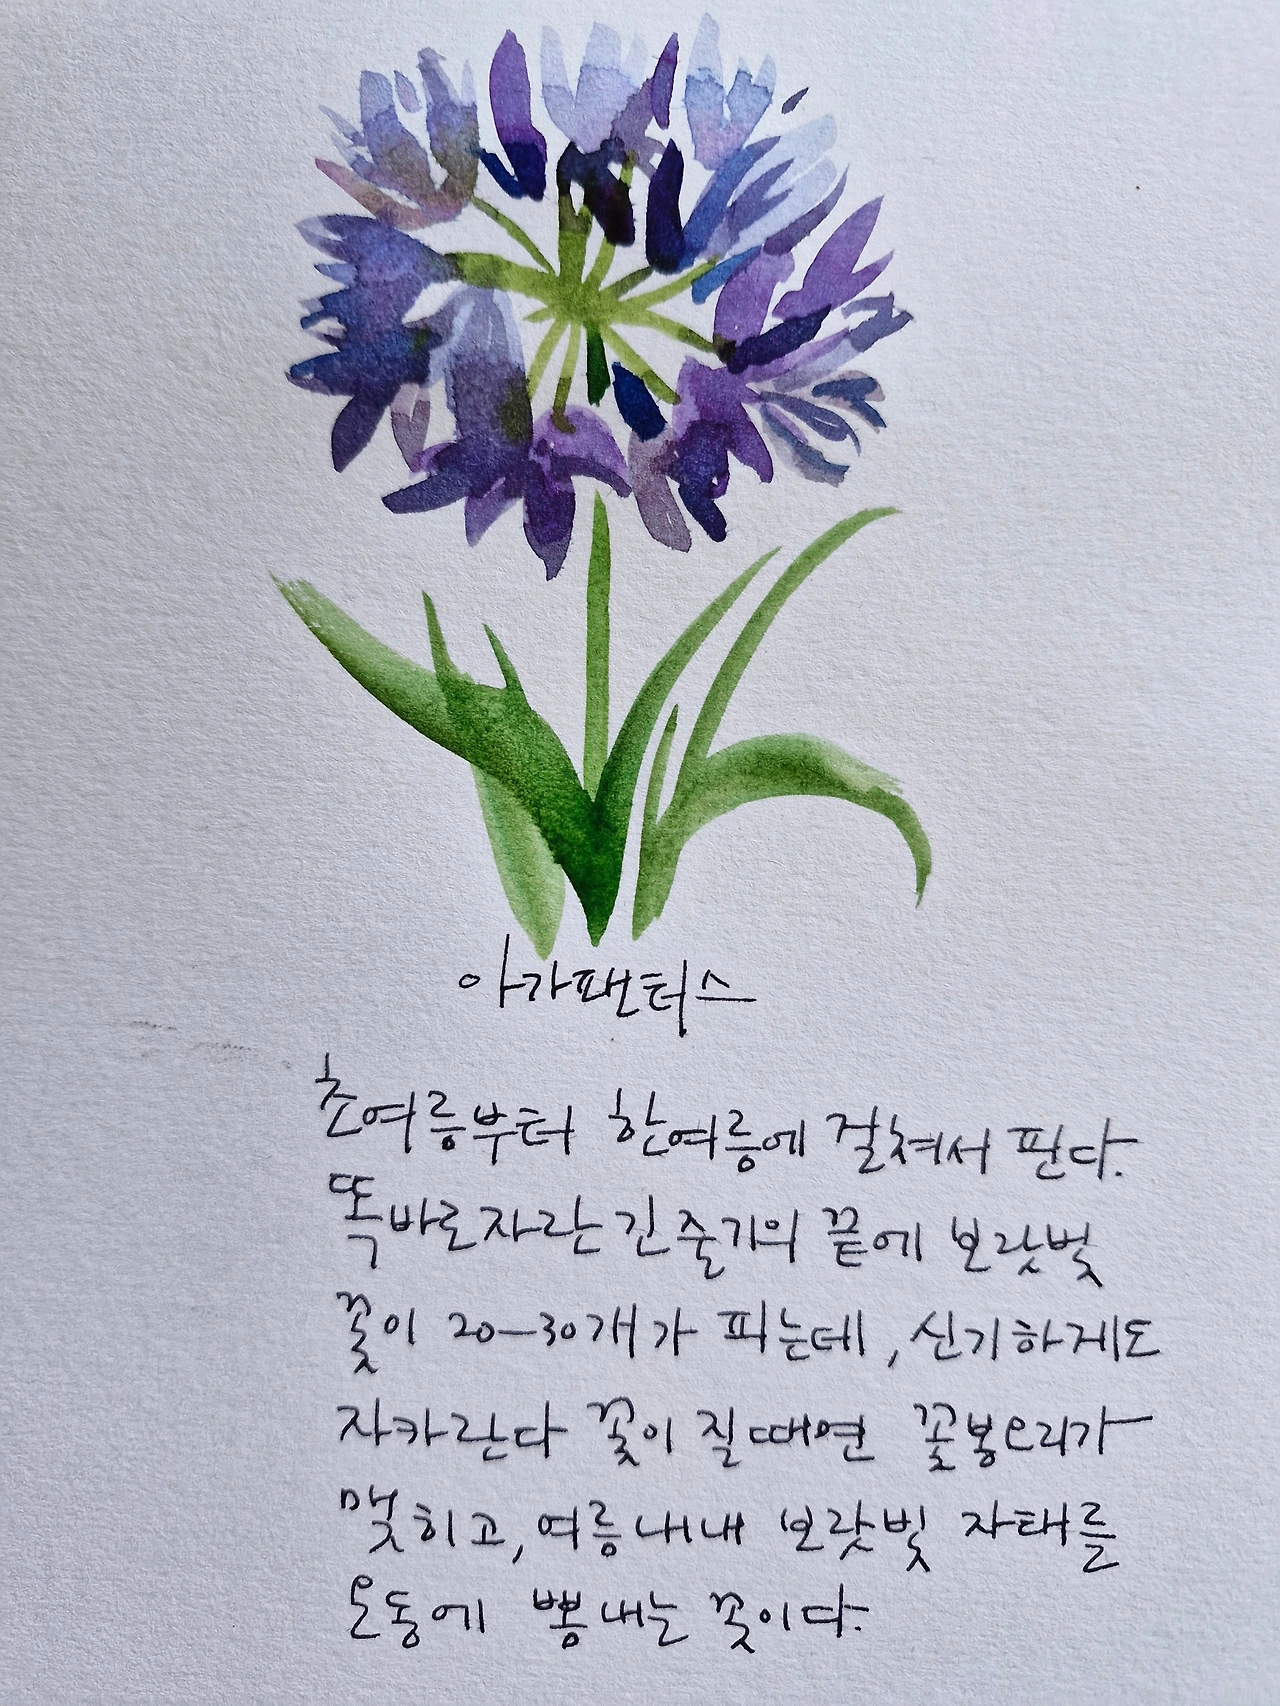 아가팬터스
초여름부터 한여름에 걸쳐서 핀다.
똑바로 자란 긴 줄기의 끝에 보랏빛
꽃이 20-30개가 피는데, 신기하게도
자카란다 꽃이 질때면 꽃봉오리가
맺히고, 여름내내 보랏빛 자태를
온동에 뽐내는 꽃이다.